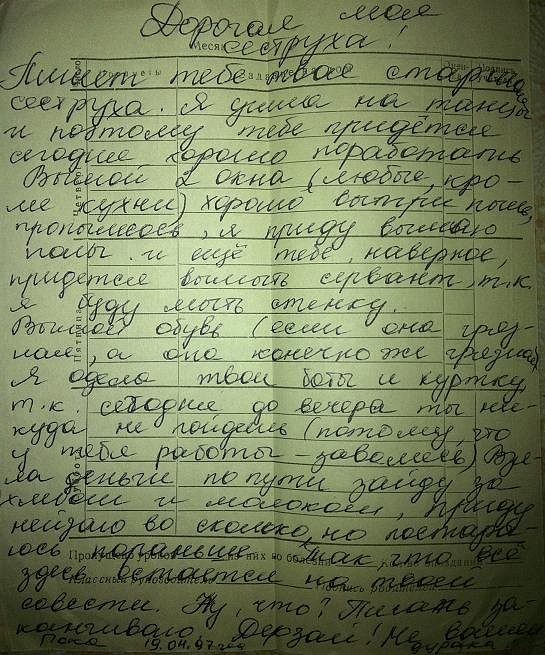 Дорогая моя
Месяц
сеструха!
Пишет тебе твоя старшая
сеструха. Я ушла на танцы
и поэтому тебе придётся
сегодня хорошо поработать
Вымой 2 окна (любые, кро-
ме кухни) хорошо вытри пыль,
пропылесось, я приду вымою
полы. и ещё тебе, наверное,
придется вымыть сервант, т.к.
я буду мыть стенку.
Вымой обувь (если она гряз-
ная, а она конечно же грязная)
Я одела твои боты и куртку,
т.к. сегодня до вечера ты ни-
куда не пойдешь (потому, что
у тебя работы - завались) Взя-
ла деньги по пути зайду за
хлебом и молоком, приду
незнаю во сколько, но постара-
юсь пораньше. Так что всё
Пропущено уроков из них по болезни
здесь остается на твоей
Классный руководитель Подпись родителей
совести. Ну, что? Писать за-
канчиваю Дерзай! Не валяй
Пока 19.04.97 год дурака